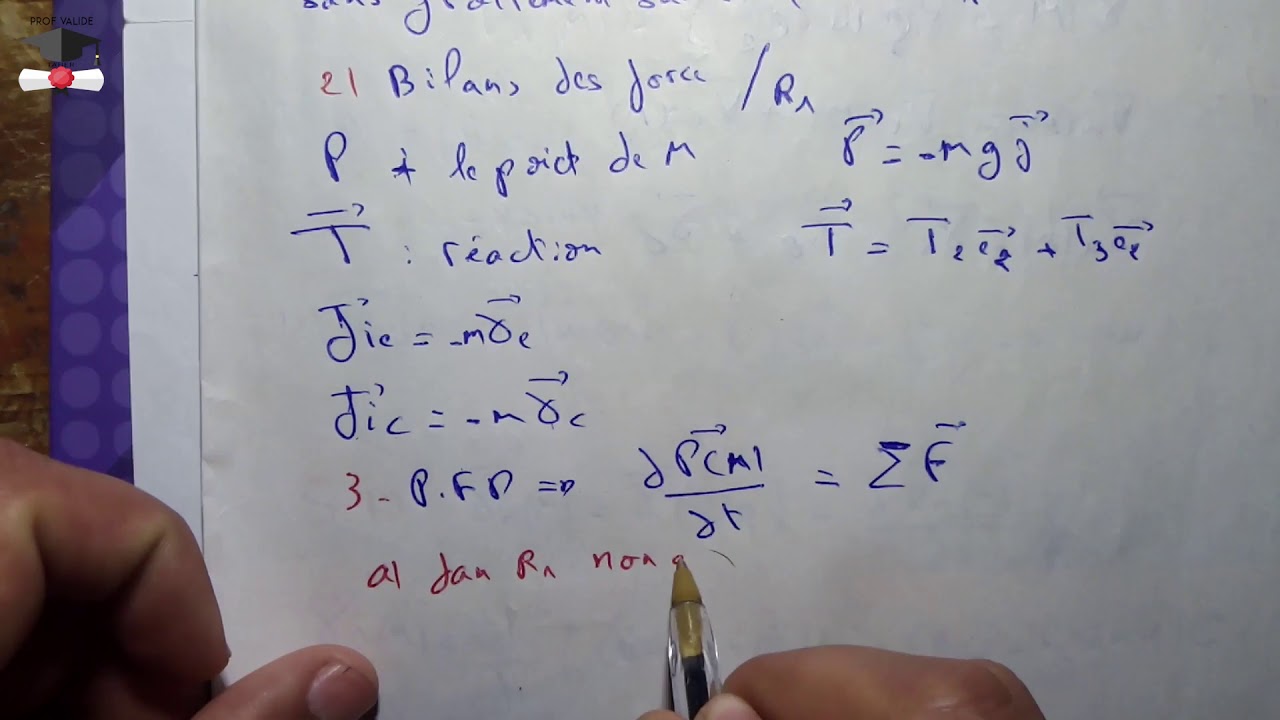 PROF VALIDE
sans frottement
2) Bilans des force / R₁
P + le poids de M P⃗ = -mg j⃗
T⃗ : réaction T⃗ = T₂e⃗₂ + T₃e⃗₂
f⃗ie = -mγ⃗e
f⃗ic = -mγ⃗c
3 - P.F.D ⇒ dP⃗(M)/dt = ΣF⃗
a) dan R₁ non